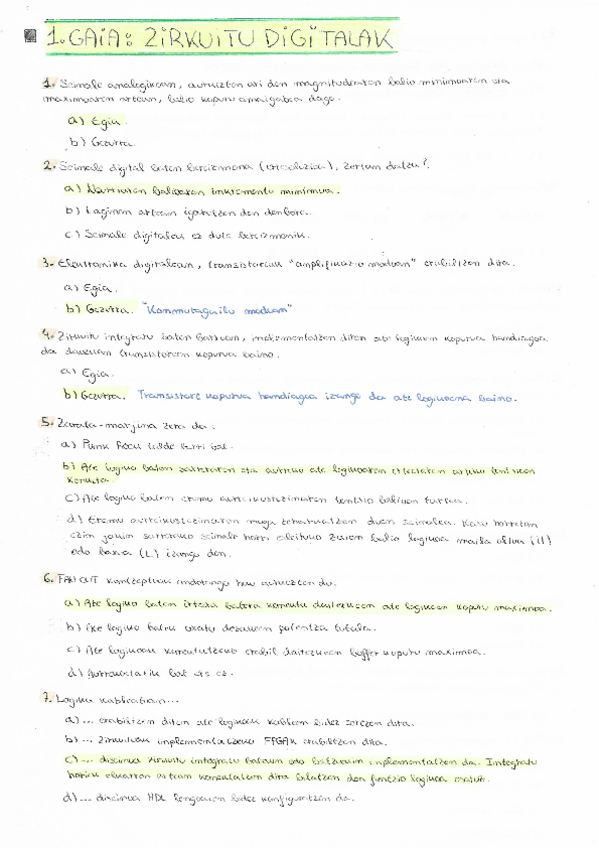 1. GAiA: ZiRKUiTU DiGiTALAK
1. Seinale analogikoan, aurkezten ari den magnitudearen balio minimoaren eta
maximoaren artean, balio kopuru amaigabea dago.
a) Egia.
b) Gezurra.
2. Seinale digital baten bereizmena (erresoluzioa), zertan datza?
a) Neurtutako balioaren inkrementu minimoa.
b) Laginen artean igarotzen den denbora.
c) Seinale digitalek ez dute bereizmenik.
3. Elektronika digitalean, transistoreak "anplifikazio moduan" erabiltzen dira.
a) Egia.
b) Gezurra. "Konmutagailu moduan"
4. Zirkuitu integratu baten barruan, inplementatzen diren ate logikoen kopurua handiagoa
da dauzkan transistoreen kopurua baino.
a) Egia.
b) Gezurra. Transistore kopurua handiagoa izango da ate logikoena baino.
5. Zarata-marjina zera da:
a) Punk Rock talde berri bat.
b) Ate logiko baten sarreraren eta aurreko ate logikoaren irteeraren arteko tentsioen
kenketa.
c) Ate logiko baten eremu aurreikustezinaren tentsio balioen tartea.
d) Eremu aurreikustezinaren muga zeharkatzen duen seinalea. Kasu horretan
ezin jakin sarrerako seinale horri esleituko zaion balio logikoa maila altua (H)
edo baxua (L) izango den.
6. FAN OUT kontzeptuak ondorengo hau aurkezten du.
a) Ate logiko baten irteera batera konektu daitezkeen ate logikoen kopuru maximoa.
b) Ate logiko batek xahutu dezakeen potentzia totala.
c) Ate logikoak konektatzeko erabil daitezkeen buffer kopuru maximoa.
d) Aurrekoetarik bat ere ez.
7. Logika kableatuan...
a) ... erabiltzen diren ate logikoak kableen bidez lotzen dira.
b) ... zirkuituak inplementatzeko FPGAk erabiltzen dira.
c) ... diseinua zirkuitu integratu batean edo batzuetan inplementatzen da. Integratu
horiek elkarren artean konektatzen dira bilatzen den funtzio logikoa
d) ... diseinua HDL lengoaien bidez konfiguratzen da.